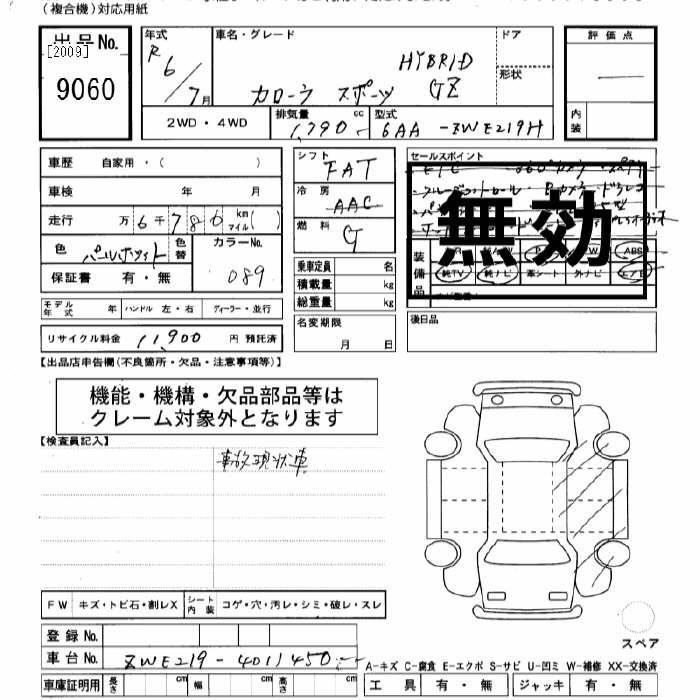 (複合機)対応用紙
出品No.
[2009]
9060
年式
R 6/7月
車名・グレード
HYBRID
カローラ スポーツ GZ
ドア
形状
2WD・4WD
排気量
1,790 cc
型式
6AA-ZWE219H
評価点
内装
車歴 自家用・( )
車検 年 月
走行 万 6千 786 km マイル( )
色 パールホワイト
色替
カラーNo.
089
保証書 有・無
モデル年式 年
ハンドル 左・右
ディーラー・並行
リサイクル料金 11,900 円 預託済
シフト
FAT
冷房
AAC
燃料
G
乗車定員 名
積載量 kg
総重量 kg
名変期限
月 日
セールスポイント
無効
装備品
ABS
純TV
純ナビ
革シート
外ナビ
エアB
後日品
【出品店申告欄(不良箇所・欠品・注意事項等)】
機能・機構・欠品部品等は
クレーム対象外となります
【検査員記入】
事故現状車
FW キズ・トビ石・割レX
シート内装 コゲ・穴・汚レ・シミ・破レ・スレ
登録No.
車台No. ZWE219-4011450
車庫証明用 長さ cm 幅 cm 高さ cm
スペア
A-キズ C-腐食 E-エクボ S-サビ U-凹ミ W-補修 XX-交換済
工具 有・無 ジャッキ 有・無